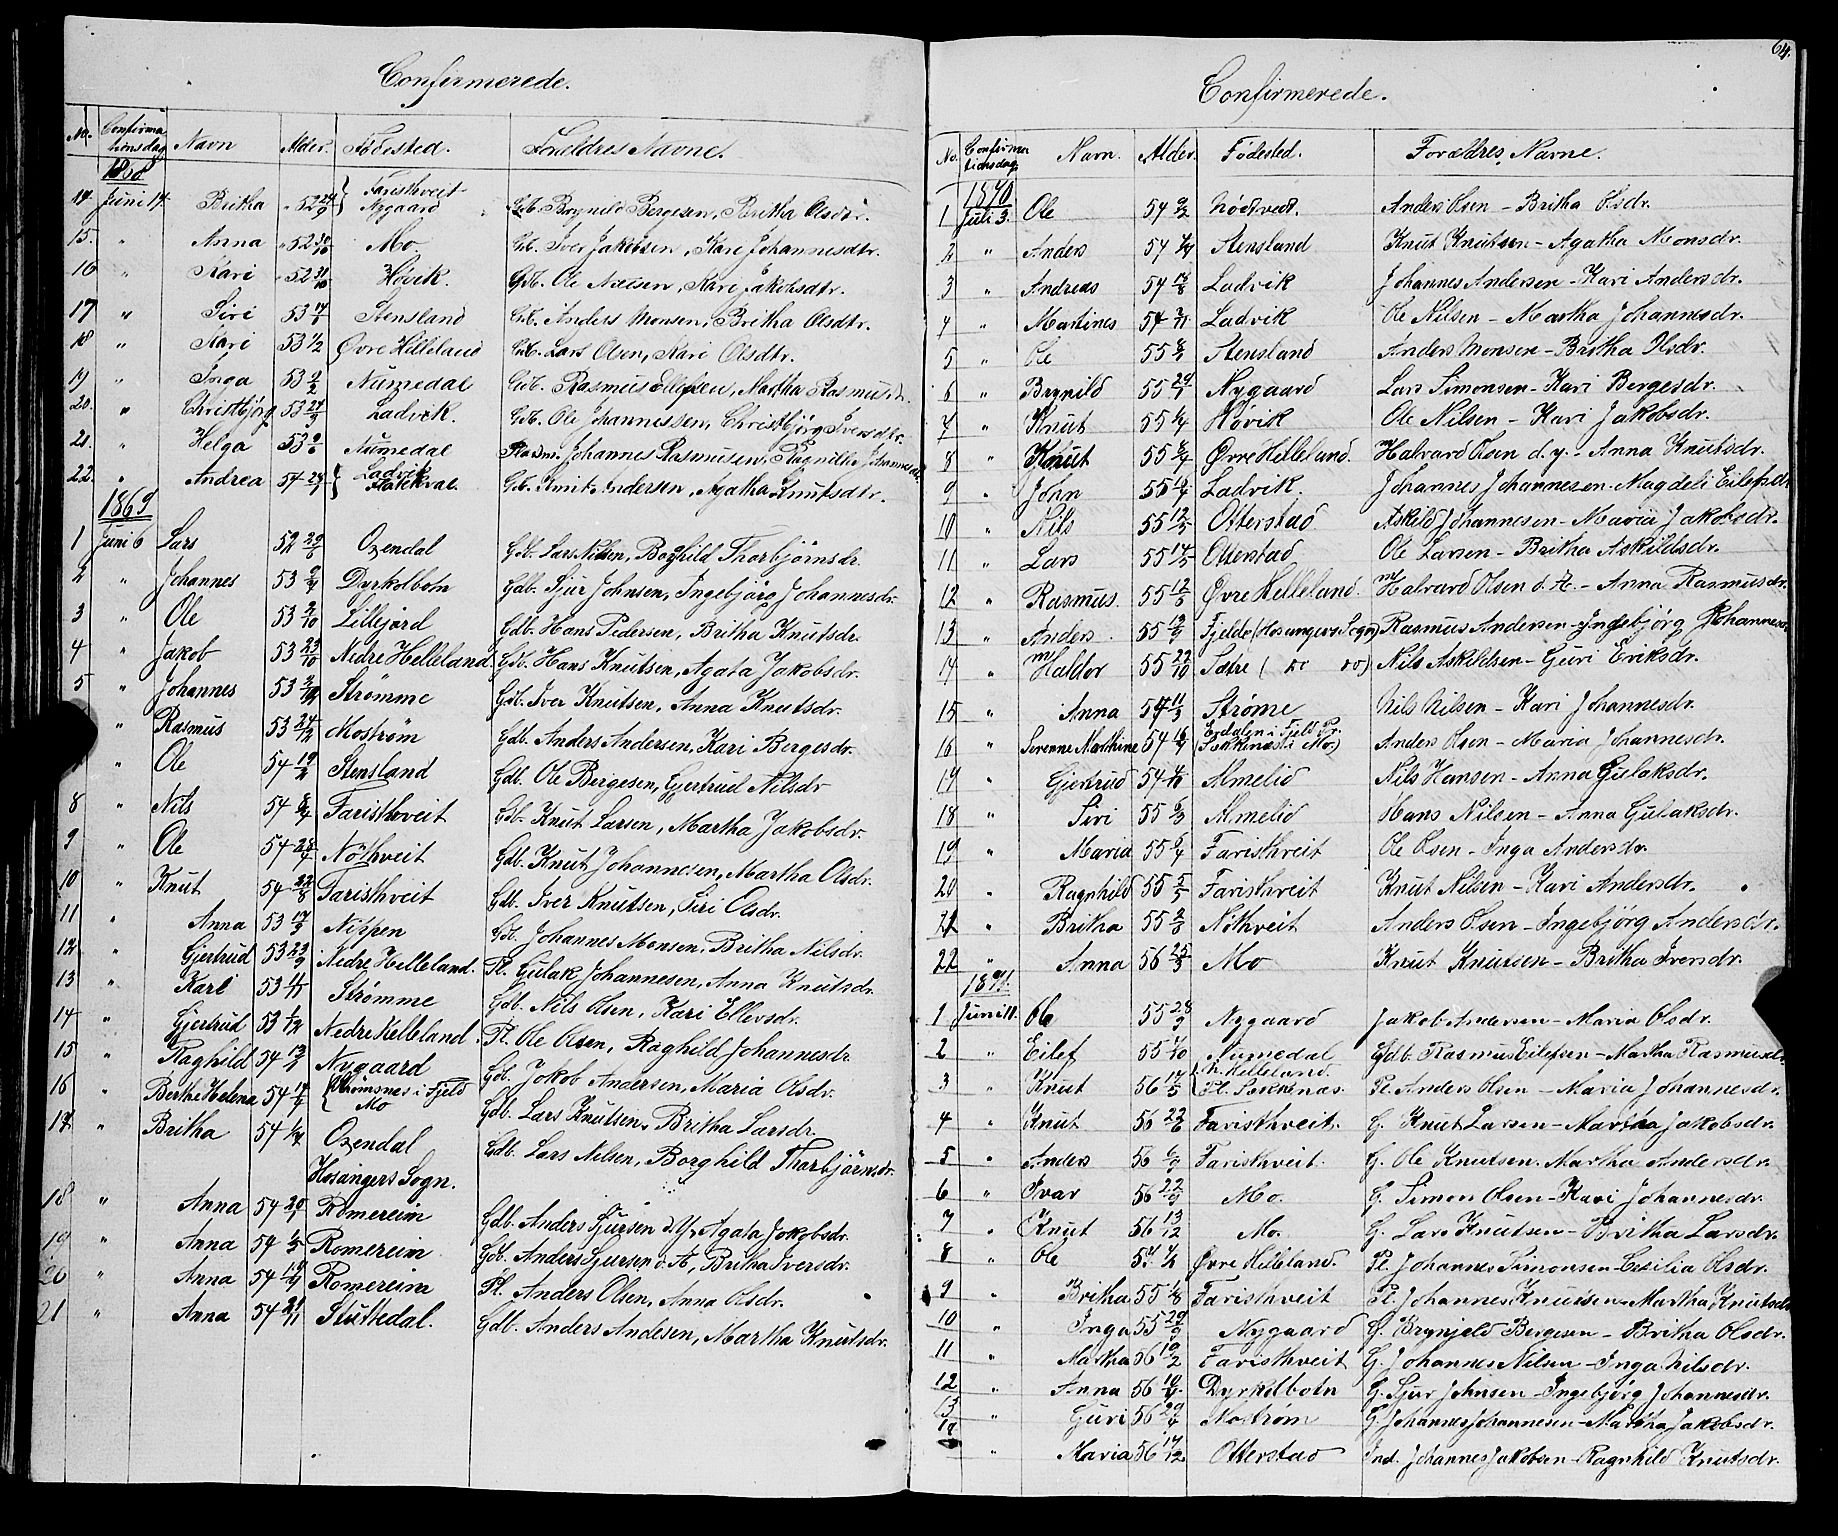 Confirmerede.
No. Confirmationsdag Navn Alder. Födested. Foreldres Navne.
1868
14 Juni 14. Britha 52 24/9 { Faristhveit Nygaard Gdb. Brynild Bergesen, Britha Olsdtr.
15. " Anna 52 30/10 Mo. Gdb. Iver Jakobsen, Kari Johannesdtr.
16 " Kari 52 31/10 Høvik. Gdb. Ole Nilsen, Kari Jakobsdtr.
17 " Siri 53 Stensland Gdb. Anders Monsen, Britha Olsdtr.
18 " Kari 53 1/2 Øvre Helleland Gdb. Lars Olsen, Kari Olsdtr.
19 " Inga 53 9/2 Numedal Gdb. Rasmus Ellefsen, Martha Rasmusdr.
20. " Christbjörg 53 Ladvik. Gdb. Ole Johannessen, Christbjörg Iversdtr.
21. " Helga 53 Numedal Husm. Johannes Rasmusen, Ragnilla Johannesdr.
22. " Andrea 54 { Ladvik Gdb. Knut Andersen, Agatha Knutsdtr.
1869
1 Juni 6 Lars 52 Ozendal Gdb. Lars Nilsen, Borghild Thorbjörnsdr.
2 " Johannes 53 Dyrkolbotn Gdb. Sjur Johnsen, Ingebjörg Johannesdr.
3 " Ole 53 2/10 Lillejord Gdb. Hans Pedersen, Britha Knutsdr.
4 " Jakob 53 23/10 Nedre Helleland Gdb. Hans Knutsen, Agata Jakobsdr.
5 " Johannes 53 Strømme Gdb. Iver Knutsen, Anna Knutsdr.
" Rasmus 53 24/12 Mostrøm Gdb. Anders Andersen, Kari Bergesdr.
" Ole 54 19/2 Stensland Gdb. Ole Bergesen, Gjertrud Nilsdr
8 " Nils 54 Faristhveit Gdb. Knut Larsen, Martha Jakobsdr.
9 " Ole 54 Nöthveit Gdb. Knut Johannesen, Martha Olsdr.
10 " Knut 54 22/8 Faristhveit Gdb. Iver Knutsen, Siri Olsdr.
11 " Anna 53 Nippen Gdb. Johannes Monsen, Britha Nilsdr.
12 " Gjertrud 53 23/9 Nedre Helleland. Pl. Gulak Johannesen, Anna Knutsdr.
13 " Kari 53 Strømme Gdb. Nils Olsen, Kari Ellevsdr.
14 " Gjertrud 53 Nedre Helleland. Pl. Ole Olsen, Raghild Johannesdr.
15 " Raghild 54 13/2 Nygaard Gdb. Jakob Andersen, Maria Olsdr.
16 " Berthe Helena 54 { i Fjeld Mo Gdb. Lars Knutsen, Britha Larsdr.
17. " Britha 54 Ozendal Gdb. Lars Nilsen, Borghild Thorbjörnsdr.
Hosangers Sogn.
18 " Anna 54 20/1 Romereim Gdb. Anders Sjursen d. Y., Agata Jakobsdr.
19 " Anna 54 Romereim Gdb. Anders Sjursen d. A., Britha Iversdr.
20 " Anna 54 Romereim Pl. Anders Olsen, Anna Olsdr.
21 " Anna 54 21/11 Stuttedal. Gdb. Anders Andesen, Martha Knutsdr.
64.
Confirmerede.
No. Confirmationsdag. Navn. Alder. Födested. Forældres Navne.
1870
1 Juli 3. Ole 54 9/2 Nödtvedt. Anders Olsen - Britha Olsdr.
2 " Anders 54 Stensland Knut Knutsen - Agatha Monsdr.
3 " Andreas 54 Ladvik Johannes Andersen - Kari Andersdr.
4 " Martines 54 Ladvik Ole Nilsen - Martha Johannesdr.
5 " Ole 55 Stensland Anders Monsen - Britha Olsdr.
6 " Brynild 55 24/1 Nygaard Lars Simonsen - Kari Bergesdr.
7 " Knut 55 Høvik Ole Nilsen - Kari Jakobsdr.
8 " Knut 55 Øvre Helleland. Halvard Olsen d. y. - Anna Knutsdr.
9 " John 55 Ladvik. Johannes Johannesen - Magdeli Eilefsdr
10 " Nils 55 12/5 Otterstad Askild Johannesen - Maria Jakobsdr.
11 " Lars 55 17/5 Otterstad Ole Larsen - Britha Askildsdr.
12 " Rasmus. 55 12/5 Øvre Helleland. Halvard Olsen d. A. - Anna Rasmusdr.
13 " Anders. 55 Fjelde (Hosangers Sogn) Rasmus Andersen - Ingebjörg Johannesdr
14 " Haldor 55 22/10 Sætre ( do do) Nils Askildsen - Guri Eriksdr.
15 " Anna 54 11/3 Strøme Nils Nilsen - Kari Johannesdr.
16 " Serenne Marthine 54 16/4 Eydalen i Fjeld Pr. (Sekkenæs i Mo) Anders Olsen - Maria Johannesdr.
17 " Gjertrud 54 Almelid Nils Hansen - Anna Gulaksdr.
18 " Siri 55 Almelid Hans Nilsen - Anna Gulaksdr.
19 " Maria 55 Faristhveit Ole Olsen - Inga Andersdr.
20 " Ragnhild 55 5/5 Faristhveit Knut Nilsen - Kari Andersdr.
21 " Britha 55 Nöthveit Anders Olsen - Ingebjörg Andersdr.
22 " Anna 56 25/3 Mo Knut Knutsen - Britha Iversdr.
1871.
1 Juni 11. Ole 55 28/9 Nygaard Jakob Andersen - Maria Olsdr.
2 " Eilef 55 Numedal Gdb. Rasmus Eilefsen - Martha Rasmusdr
3 " Knut 56 17/5 { N. Helleland Pl. Sekkenæs. Pl. Anders Olsen - Maria Johannesdr.
4 " Knut 56 Faristhveit. G. Knut Larsen - Martha Jakobsdr.
5 " Anders 56 Faristhveit. G. Ole Knutsen. Martha Andersdr.
6 " Ivar 56 22/9 Mo. G. Simon Olsen - Kari Johannesdr.
7 " Knut 56 13/12 Mo. G. Lars Knutsen - Britha Larsdr.
8 " Ole 57 Øvre Helleland. Pl. Johannes Simonsen - Cicilia Olsdr.
9 " Britha 55 Faristhveit Pl. Johannes Knutsen - Martha Knutsdr
10 " Inga 55 29/9 Nygaard G. Brynjeld Bergesen - Britha Olsdr.
11 " Martha 56 19/2 Faristhveit G. Johannes Nilsen - Inga Nilsdr.
12 " Anna 56 Dyrkolbotn G. Sjur Johnsen - Ingebjörg Johannesdr.
13 " Guri 56 Mostrøm G. Johannes Johannesen - Martha Jakobsdr.
14 " Maria 56 17/12 Otterstad Ind. Johannes Jakobsen - Ragnhild Knutsdr.